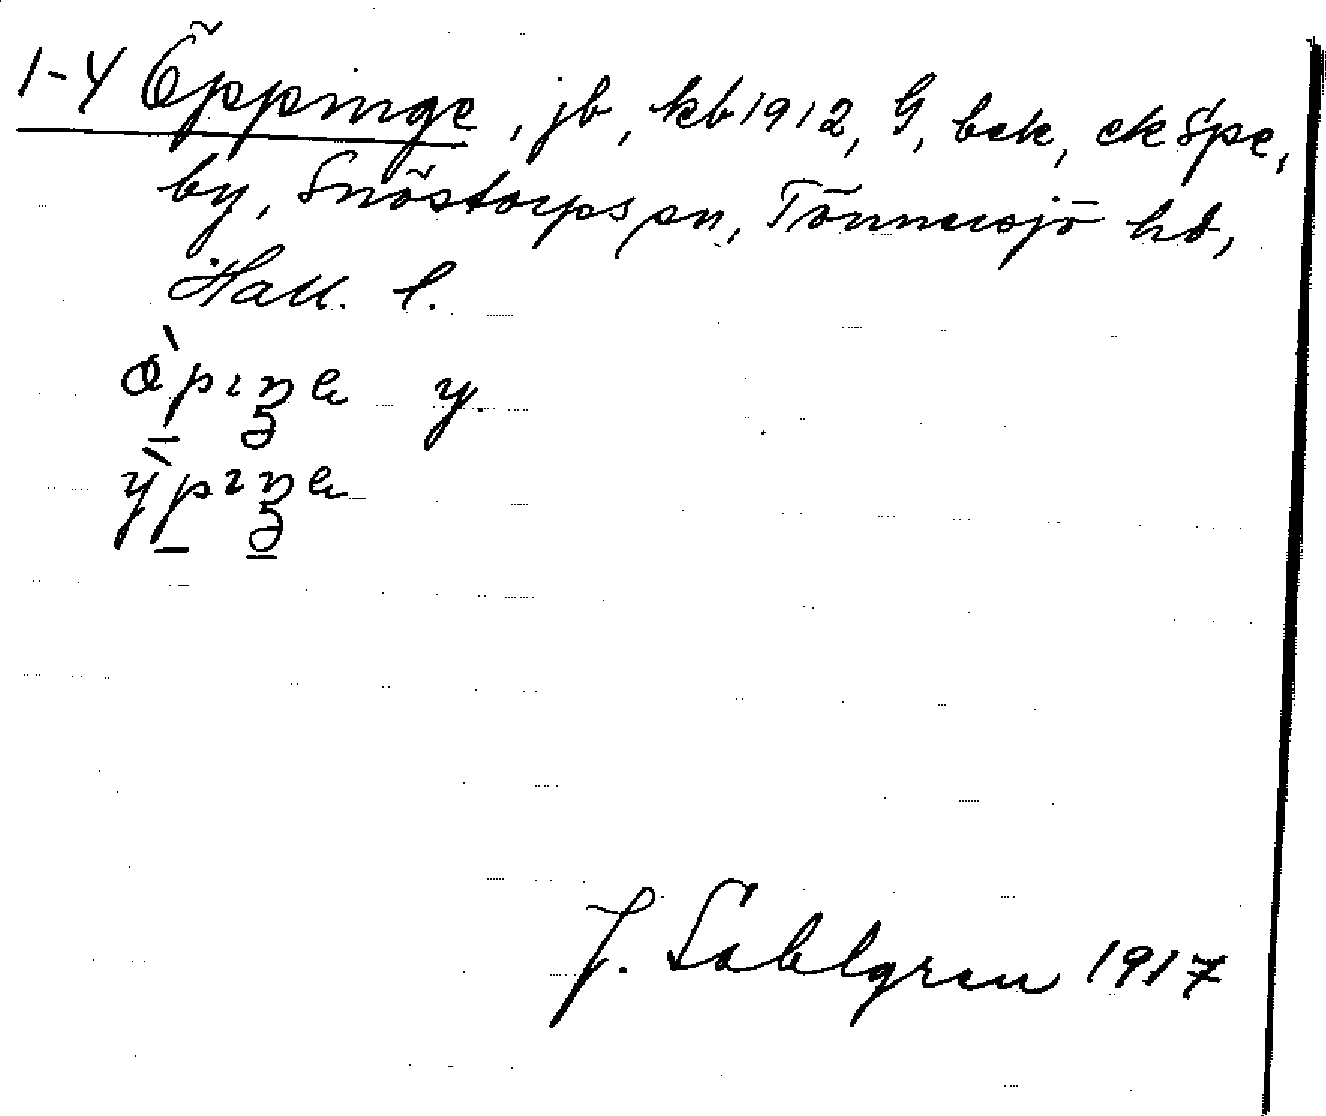 1-4 Öppinge, jb, kb 1912, G, bek, ek Spe,
by, Snöstorps sn, Tönnersjö hd,
Hall. l.
y.
J. Sahlgren 1917